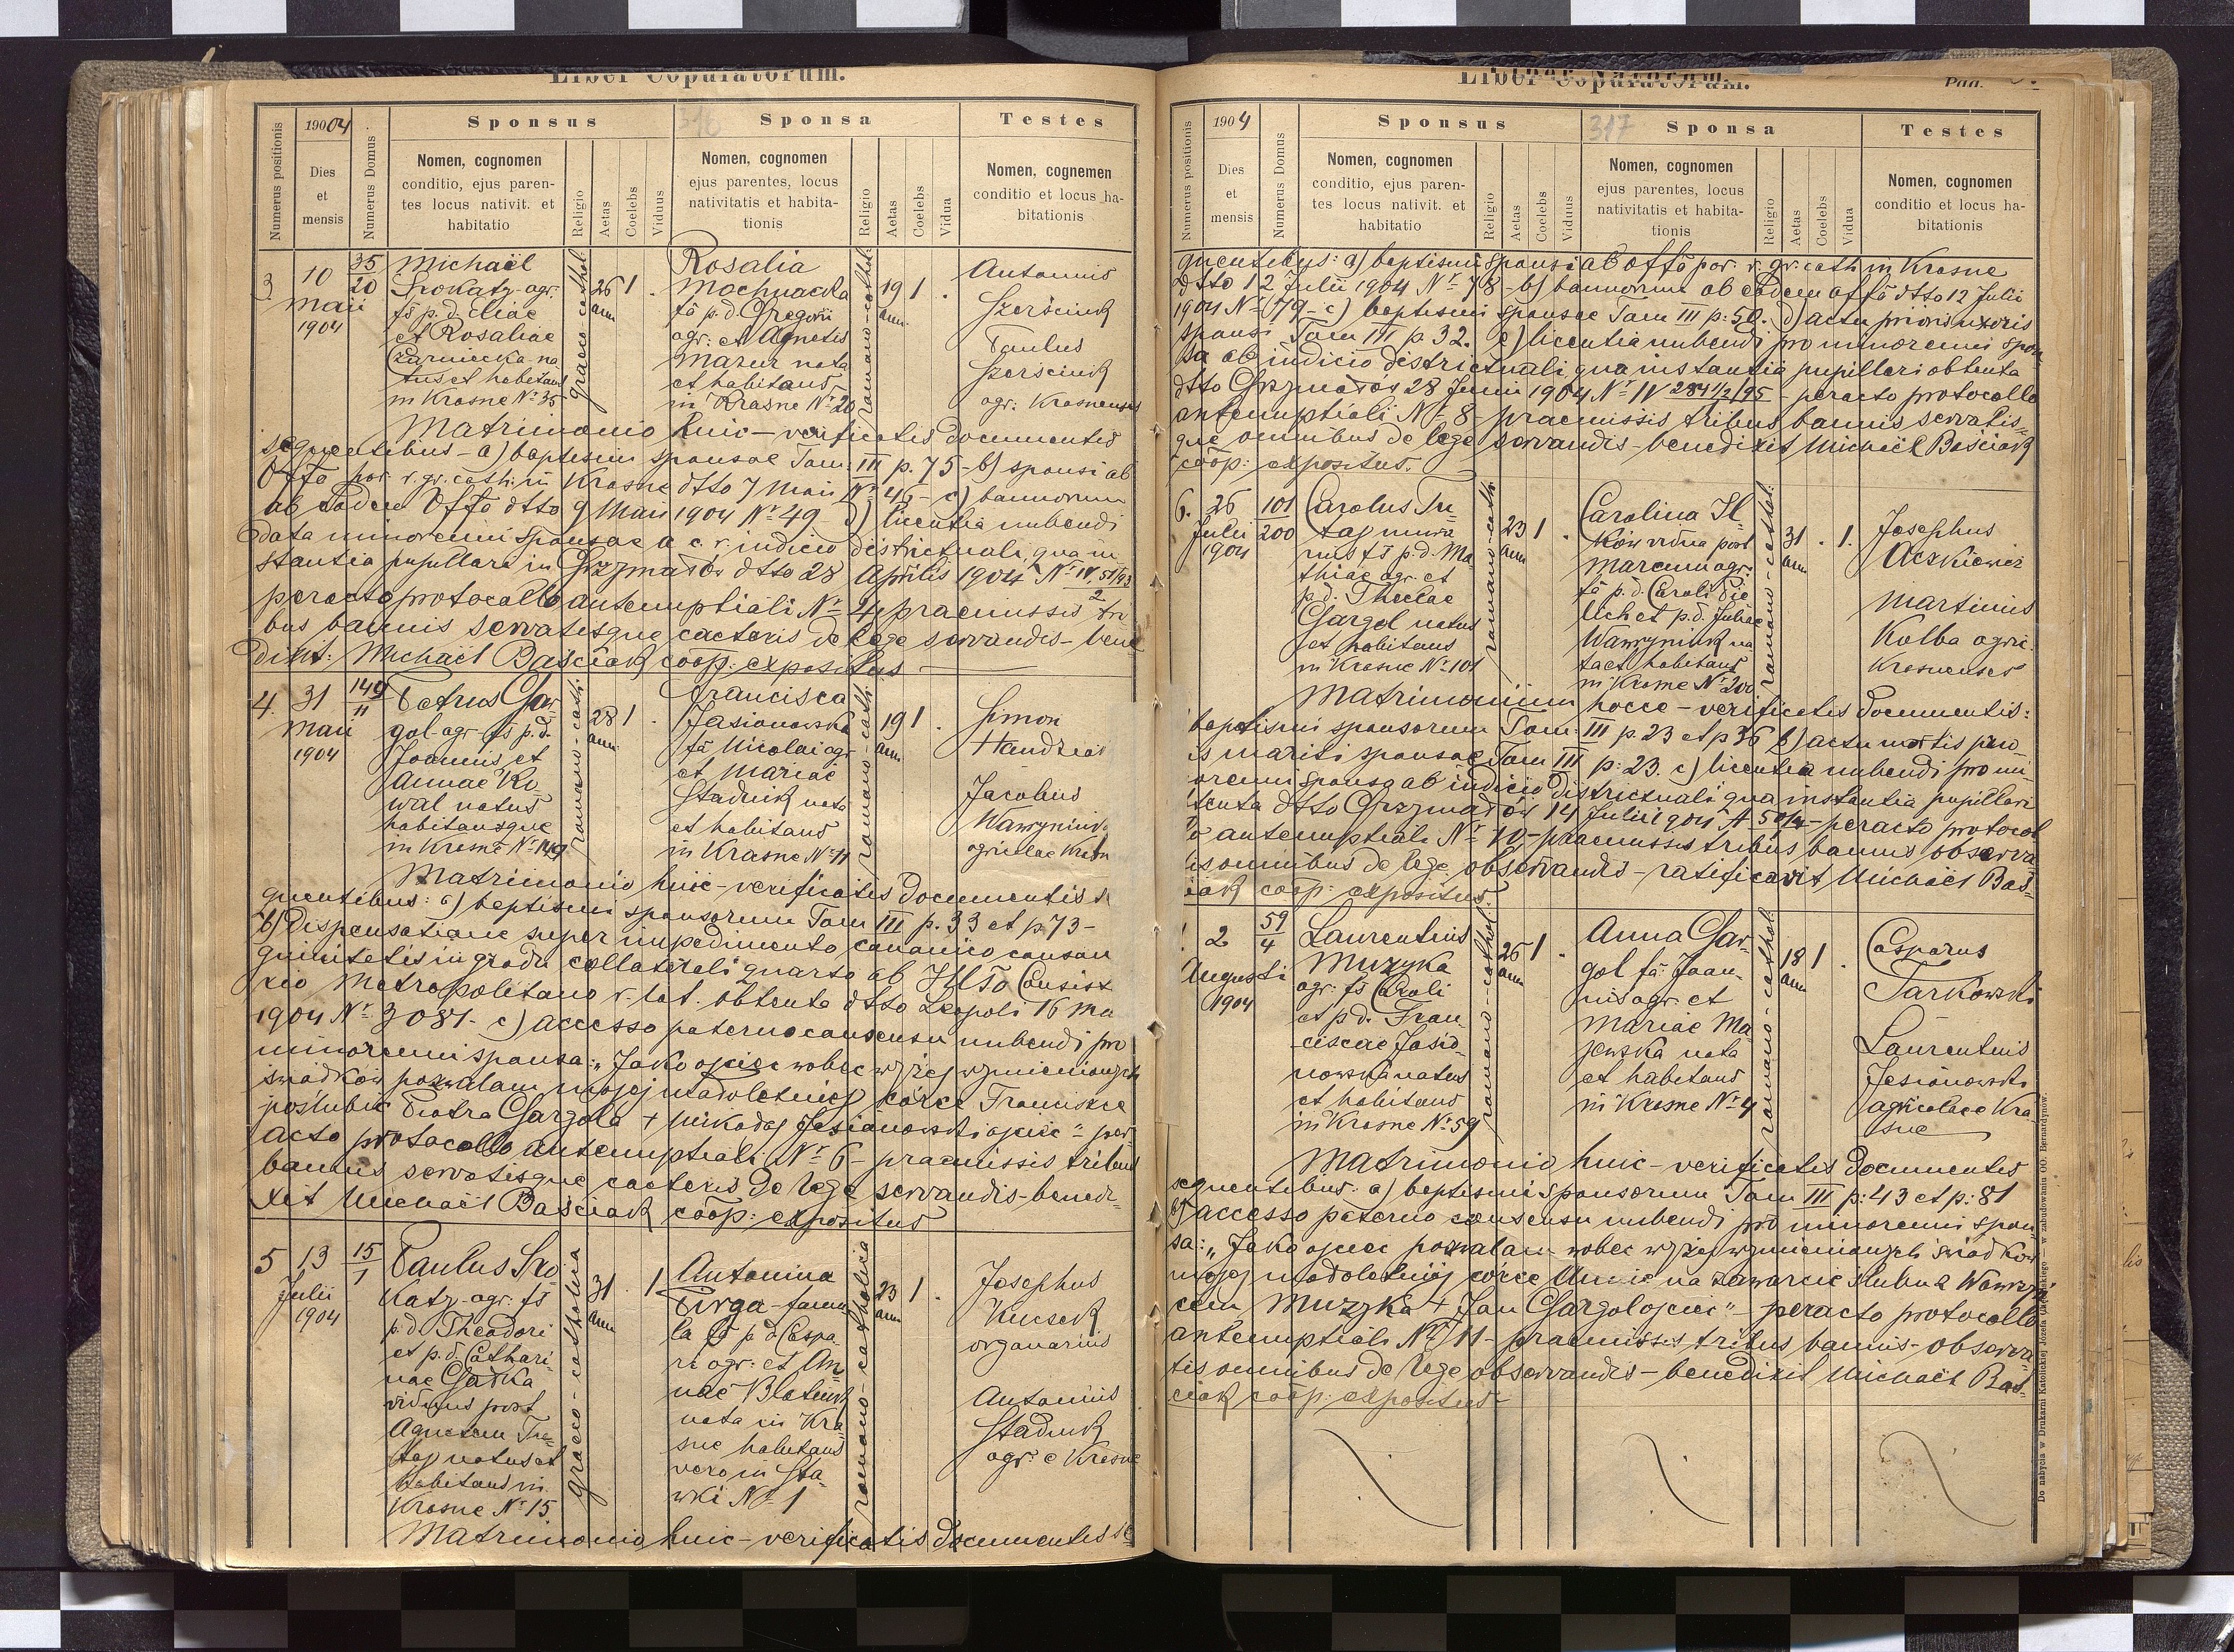 Liber Copulatorum.
Numerus positionis
1904
Dies
et
mensis
Numerus Domus
Sponsus
Nomen, cognomen
conditio, ejus paren-
tes locus nativit. et
habitatio
Religio
Aetas
Coelebs
Viduus
316
Sponsa
Nomen, cognomen
ejus parentes, locus
nativitatis et habita-
tionis
Religio
Aetas
Coelebs
Vidua
Testes
Nomen, cognemen
conditio et locus ha-
bitationis
3.
10
Maii
1904
35
20
Michaël
agr.
fs p. d. Eliae
et Rosaliae
Czarniecka na
tus et habitans
in Krasne Nº 35
graeco-cathol.
26
ann
1
.
Rosalia
Mochnacka
fa p. d. Gregorii
agr: et Agnetis
Mazur nata
et habitans
in Krasne Nº 20
romano-cathol.
19
ann.
1
.
Antonius
Paulus
agr: Krasnenses
Matrimonio huic – verificatis documentis
sequentibus – a) baptismi sponsae Tom: III p. 75 – b) sponsi ab
Offo par. r. gr. cath: in Krasne dtto 7 Maii Nº 46 – c) bannorum
ab eodem Offo dtto 9 Maii 1904 Nº 49 – d) licentia nubendi
data minorenni sponsae a c. r. iudicio districtuali, qua in
stantia pupillari in Grzymałów dtto 28 Aprilis 1904
peracto protocollo antenuptiali Nº 4 praemissis tri
bus bannis servatisque caeteris de lege servandis – bene
dixit: Michaël Baściak coop: expositus
4.
31
Maii
1904
149
11
Petrus Gar-
gol agr fs p. d.
Joannis et
Annae Ko-
wal natus
habitansque
in Krasne Nº 149
romano-cath.
28
ann
1
.
Francisca
Jasionowska
fa Nicolai agr
et Mariae
Stadnik nata
et habitans
in Krasne Nº 11
romano-cath.
19
ann.
1
.
Simon
Jacobus
Wawryniuk
agricolae
Matrimonio huic – verificatis documentis se
quentibus: a) baptismi sponsorum Tom III p. 33 et p 73 –
b) Dispensatione super impedimento canonico consan
guinitatis in gradu collaterali quarto ab Consist
rio Metropolitano r. lat. obtenta dtto Leopoli 16 Ma
1904 Nº 3081 – c) accesso paterno consensu nubendi pro
minorenni sponsa: „Jako ojciec wobec wyżej wymienionych
świadków pozwalam mojej małoletniej córce Franciszce
poślubić Piotra Gargola + Mikołaj Jasionowski ojciec" – per
acto protocollo antenuptiali Nº 6 – praemissis tribus
bannis servatisque caeteris de lege servandis – benedi-
xit Michaël Baściak coop: expositus
5
13
Julii
1904
15
1
Paulus
agr: fs
p. d. Theodori
et p. d. Cathari-
nae
viduus post
Agnetem Tre-
tag natus et
habitans in
Krasne Nº 15.
graeco-catholica
31
ann
.
1
Antonina
Pirga – famu
la fa p d Caspa
ri agr: et An
nae
nata in Kra
sne habitans
vero in Sta
wki Nº 1
romano-catholica
23
ann
1
.
Josephus
Kucsek
organarius
Antonius
Stadnik
agr: e Krasne
Matrimonio huic – verificatis documentis se
Liber Copulatorum.
Pag.
Numerus positionis
1904
Dies
et
mensis
Numerus Domus
Sponsus
Nomen, cognomen
conditio, ejus paren-
tes locus nativit. et
habitatio
Religio
Aetas
Coelebs
Viduus
317
Sponsa
Nomen, cognomen
ejus parentes, locus
nativitatis et habita-
tionis
Religio
Aetas
Coelebs
Vidua
Testes
Nomen, cognomen
conditio et locus ha-
bitationis
quentibus: a) baptismi sponsi ab offo par. r. gr. cath in Krasne
dtto 12 Julii 1904 Nº 78 – b) bannorum ab eodem offo dtto 12 Julii
1904 Nº 79 – c) baptismi sponsae Tom III p: 50. d) actu prioris uxoris
sponsi Tom III p 32. e) licentia nubendi pro minorenni spon
sa ab iudicio districtuali qua instantia pupillari obtenta
dtto Grzymałów 28 Junii 1904 Nº IV 284 1/2/95 – peracto protocollo
antenuptiali Nº 8 praemissis tribus bannis servatis=
que omnibus de lege servandis – benedixit Michaël Baściak
coop: expositus.
6.
26
Julii
1904
101
200
Carolus Tre-
tag
fs p. d. Ma
thiae agr. et
p. d. Theclae
Gargol natus
et habitans
in Krasne Nº 101
romano-cath.
23
ann
1
.
Carolina Il-
ków vidua post
agr.
fa p. d. Caroli Die
lich et p. d. Juliae
Wawryniuk na
ta et habitans
in Krasne Nº 200
romano-cathol.
31
ann
.
1.
Josephus
Martinus
Kolba agric.
Krasnenses
Matrimonium hocce – verificatis documentis:
baptismi sponsorum Tom III p. 23 et p 36 b) actu mortis prio-
is mariti sponsae Tom III p: 23. c) licentia nubendi pro mi-
orenni sponso ab iudicio districtuali qua instantia pupillari
tenta dtto Grzymałów 14 Julii 1904 – peracto protocol
o antenuptiali Nº 10 – praemissis tribus bannis observa
is omnibus de lege observandis – ratificavit Michaël Baś-
iak coop: expositus.
2
Augusti
1904
59
4
Laurentius
Muzyka
agr. fs Caroli
et p d. Fran-
ciscae Jasio-
nowska natus
et habitans
in Krasne Nº 59
romano-cathol.
26
ann
1
.
Anna Gar-
gol fa: Joan-
nis agr. et
Mariae Ma-
jewska nata
et habitans
in Krasne Nº 4
romano-cathol.
18
ann
1
.
Casparus
Tarkowski
Laurentius
Jasionowski
agricolae Kra
sne
Matrimonio huic – verificatis documentis
sequentibus: a) baptismi sponsorum Tom III p: 43 et p: 81
b) accesso paterno consensu nubendi pro minorenni spon
sa: „Jako ojciec pozwalam wobec wyżej wymienionych świadków
mojej małoletniej córce Annie na zawarcie ślubu z Wawrzy
cem Muzyka + Jan Gargol ojciec" – peracto protocollo
antenuptiali Nº 11 – praemissis tribus bannis – observa
tis omnibus de lege observandis – benedixit Michaël Baś-
ciak coop: expositus